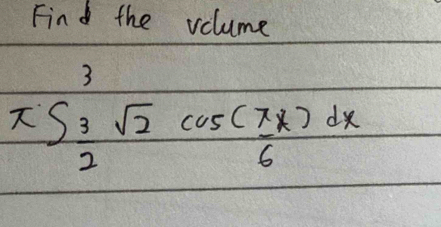 Find the volume
3
π ∫ 3/2 √2 cos(πx/6) dx